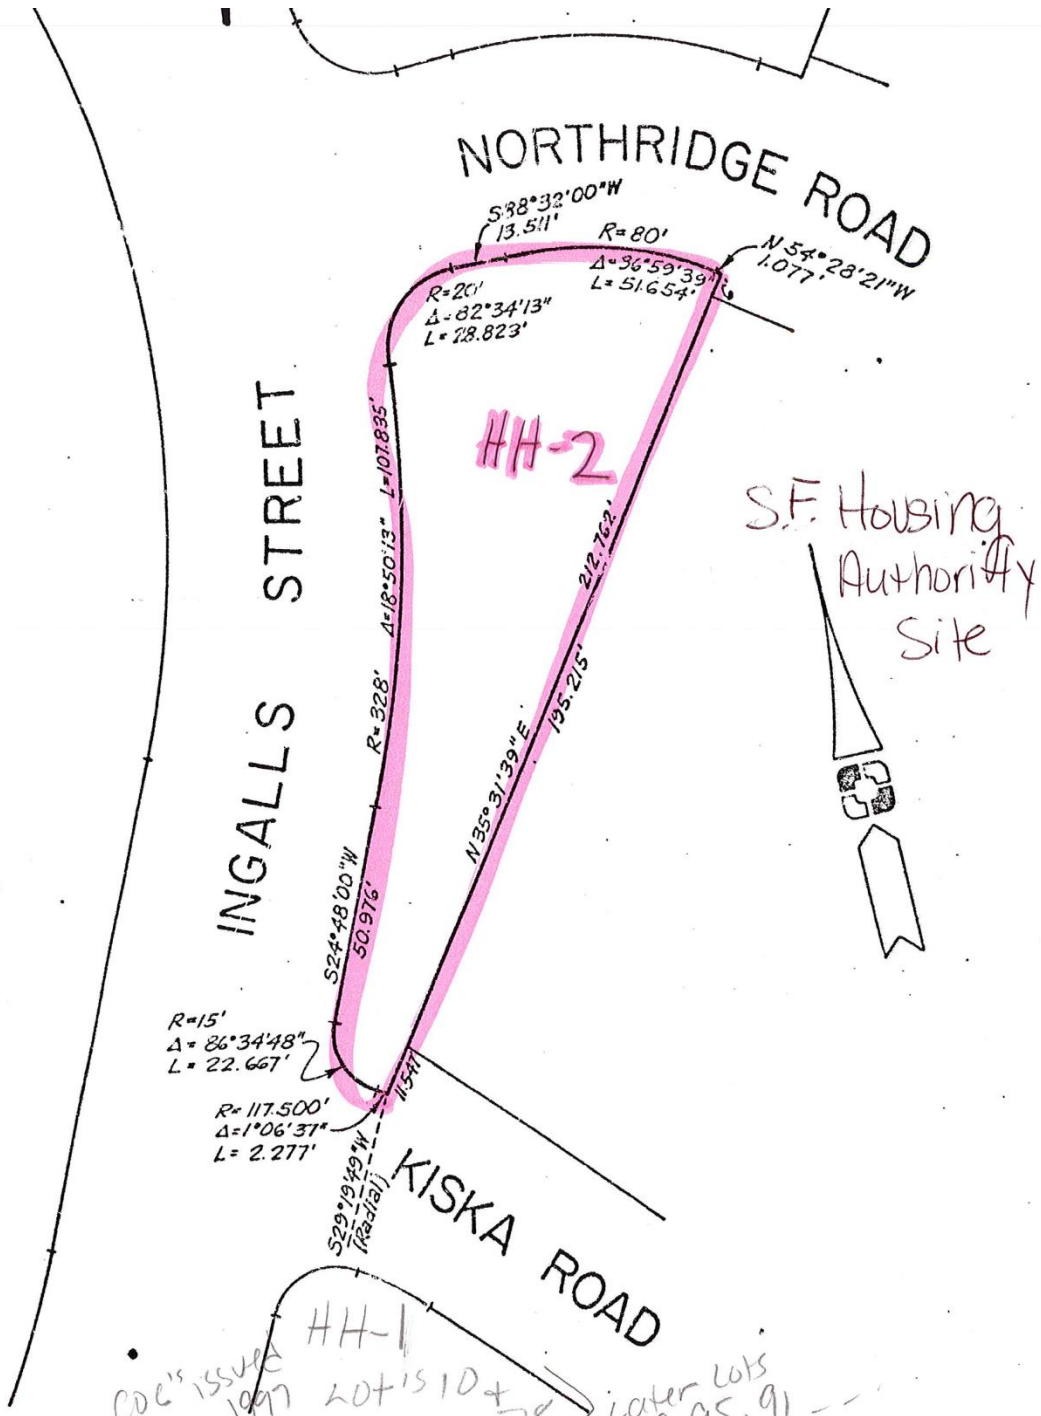 NORTHRIDGE ROAD
S88°32'00"W
13.511'
R=80'
Δ=36°59'39"
L=51.654'
N54°28'21"W
1.077'
R=20'
Δ=82°34'13"
L=28.823'
HH-2
S.F. Housing
Authority
Site
INGALLS STREET
R=328' Δ=18°50'13" L=107.835'
212.762'
195.215'
N35°31'39"E
S24°48'00"W
50.976'
R=15'
Δ=86°34'48"
L=22.667'
R=117.500'
Δ=1°06'37"
L=2.277'
11.547'
S29°19'49"W
(Radial)
KISKA ROAD
HH-1
issued
1997 Lot's 10 +
Later Lots
95, 91